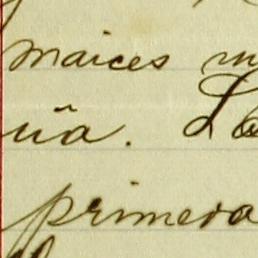 maices
ũa. La
primera